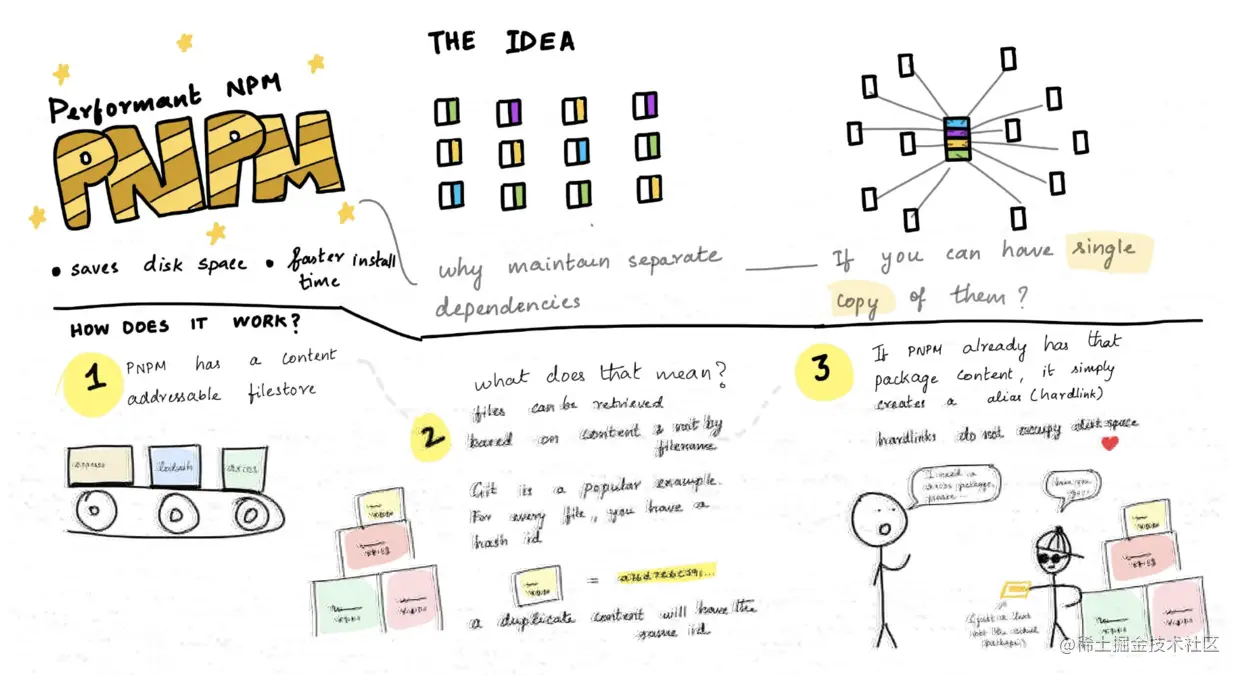 Performant NPM
PNPM
• saves disk space • faster install
time
THE IDEA
why maintain separate
dependencies
If you can have single
copy of them?
HOW DOES IT WORK?
1
PNPM has a content
addressable filestore
express
axios
2
what does that mean?
files can be retrieved
based on content & not by
filename
Git is a popular example.
For every file, you have a
hash id
=
a duplicate content will have the
same id
3
If PNPM already has that
package content, it simply
creates a alias (hardlink)
hardlinks do not occupy disk space
I need a
axios package,
please...
@稀土掘金技术社区